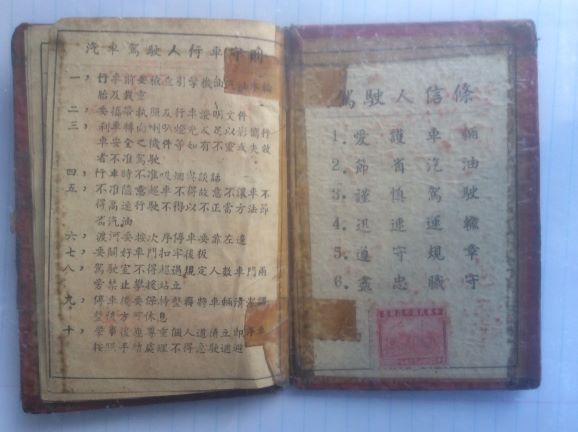 汽車駕駛人行車守則
一，行車前要檢查引擎機油汽油水輪
胎及載重
二，要攜帶執照及行車證明文件
三，剎車轉向喇叭燈光及足以影響行
車安全之機件等如有不靈或失效
者不准駕駛
四，行車時不准吸烟與談話
五，不准隨意超車不得故意不讓車不
得高速行駛不得以不正當方法節
省汽油
六，渡河要按次序停車要靠左邊
七，要關好車門扣牢後板
八，駕駛室不得超過規定人數車門兩
旁禁止攀援站立
九，停車後要保持整潔將車輛清潔調
整後方可休息
十，肇事後應尊重個人道德立即停車
按照手續處理不得急駛逃避
駕駛人信條
1. 愛護車輛
2. 節省汽油
3. 謹慎駕駛
4. 迅速運輸
5. 遵守規章
6. 盡忠職守